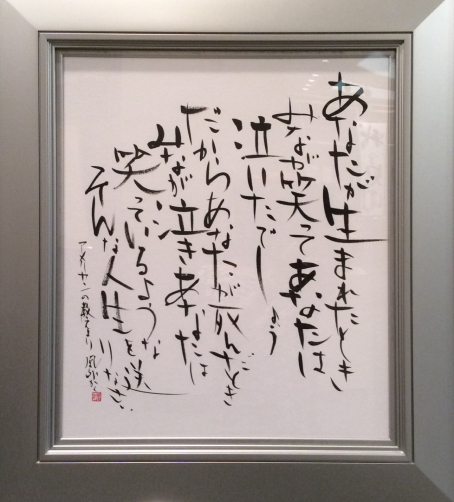 あなたが生まれたとき
みなが笑ってあなたは
泣いたでしょう
だからあなたが死んだとき
みなが泣きあなたは
笑っているような
そんな人生を送
りなさい
アメリカンの教えより